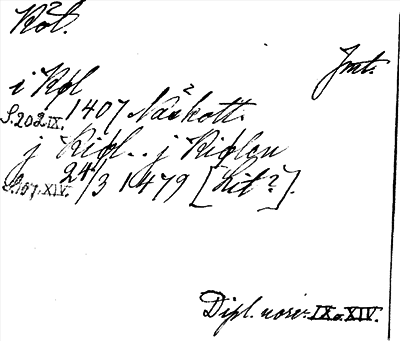 Köl.
Jmt.
i Køl
S. 202 IX. 1407 Näskott.
j Kiøl.. j Kiølen
S. 157. XIV. 24/3 1479 [Lit?].
Dipl. norv. IX o. XIV.